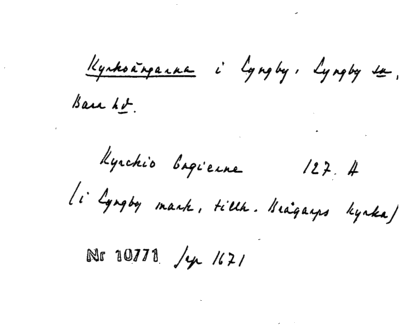 Kyrkoängarna i Lyngby, Lyngby sn,
Bara hd.
Kyrckio Engierne 127. A
(i Lyngby mark, tillh. Brågarps kyrka)
Nr 10771 Jrp 1671